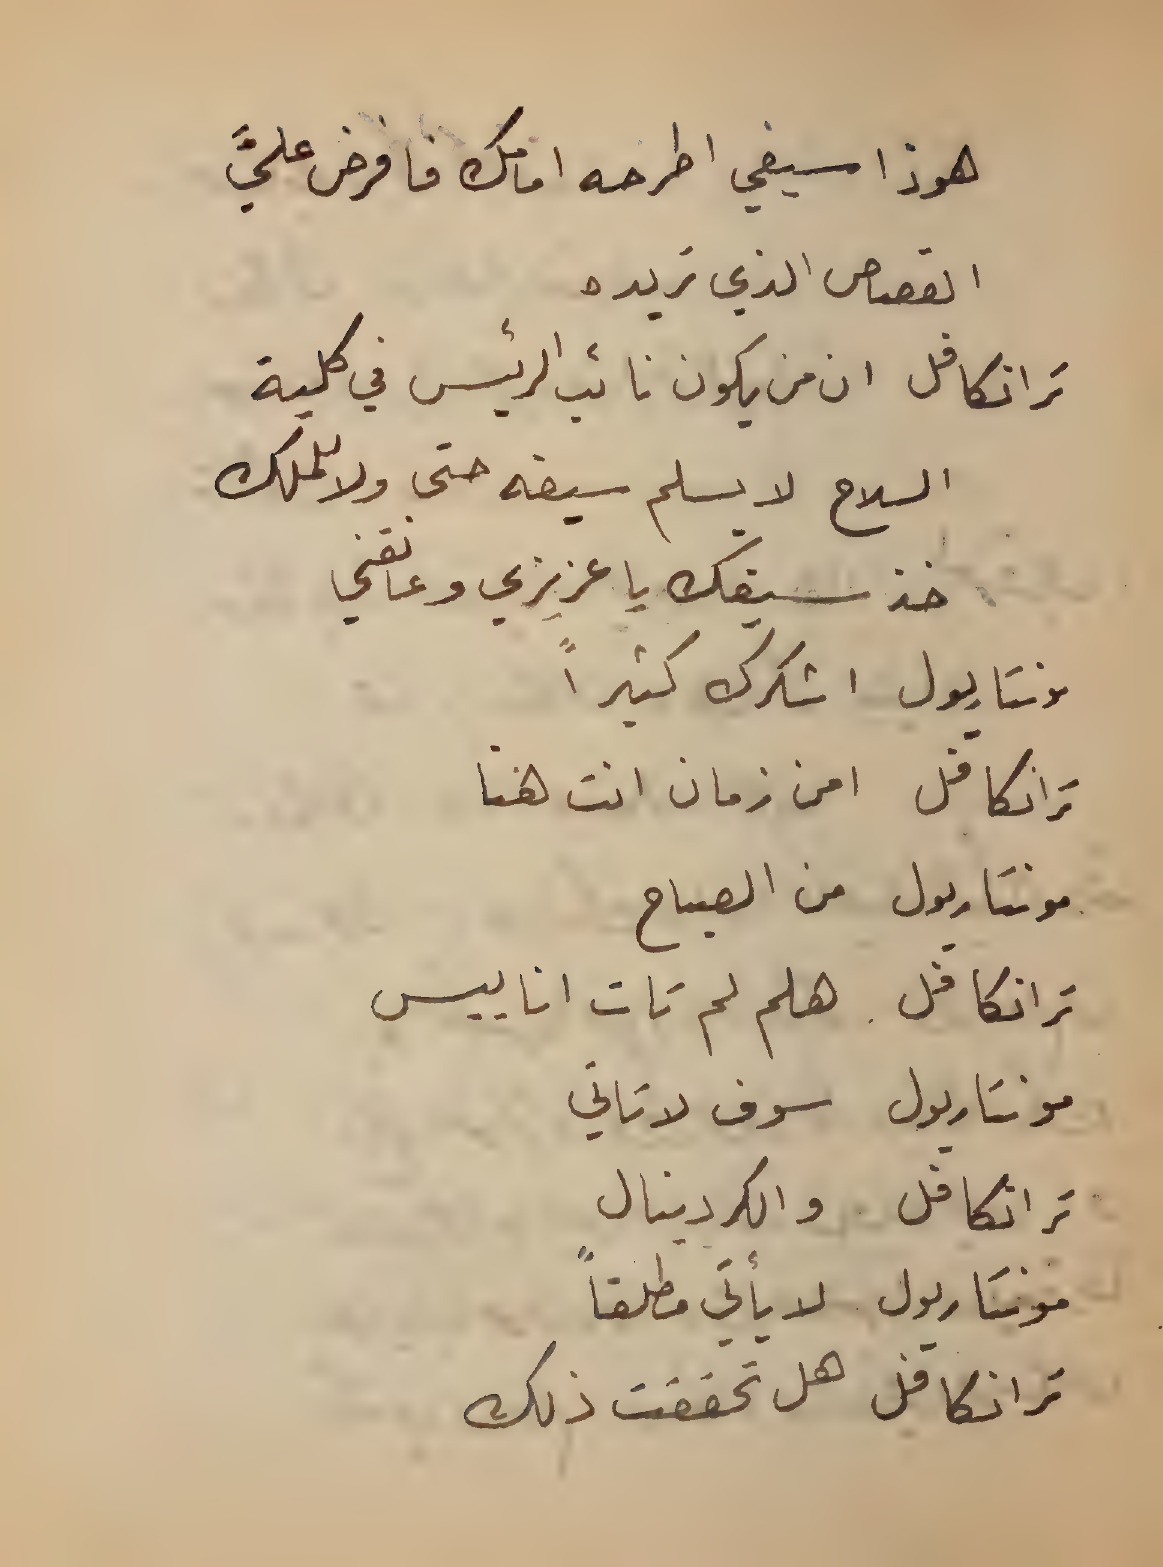 هوذا سيفي اطرحه امامك فافرض عليَّ
القصاص الذي تريده
ترانكافل ان من يكون نائب الرئيس في كلية
السلاح لا يسلم سيفه حتى ولا للملك
خذ سيفك يا عزيزي وعانقني
مونتاريول اشكرك كثيراً
ترانكافل امن زمان انت هنا
مونتاريول من الصباح
ترانكافل . هلم لم تات انا بيس
مونتاريول سوف لا تاتي
ترانكافل والكردينال
مونتاريول لا يأتي مطلقاً
ترانكافل هل تحققت ذلك